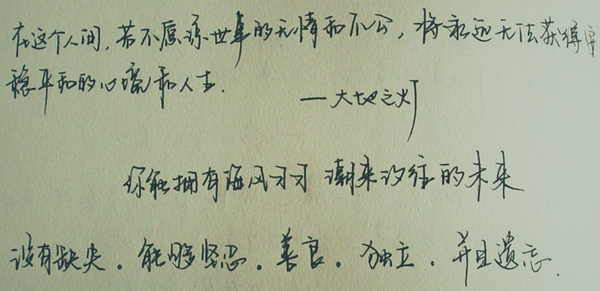 在这个人间,若不原谅世事的无情和不公,将永远无法获得安
稳平和的心境和人生.
—大地之灯
你能拥有海风习习 潮来汐往的未来
没有缺失.能够坚忍.善良.独立.并且遗忘.